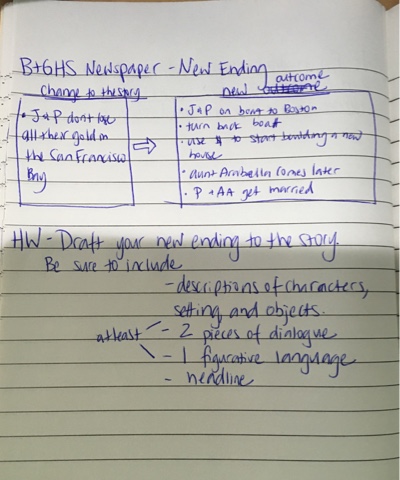 B+GHS Newspaper - New Ending
change to the story
new outcome
• J&P don't lose
all their gold on
the San Francisco
Bay
• J&P on boat to Boston
• turn back boat
• use $ to start building a new
house
• aunt Arabella comes later
• P + AA get married
HW - Draft your new ending to the story.
Be sure to include
- descriptions of characters,
setting and objects.
at least - 2 pieces of dialogue
- 1 figurative language
- headline